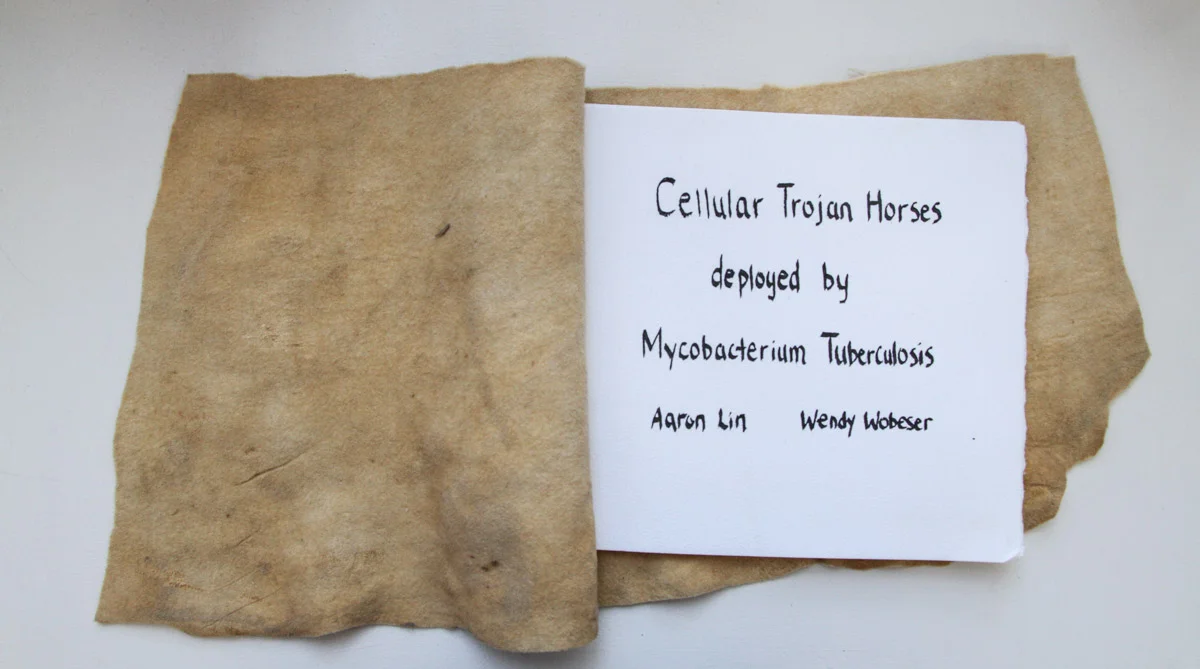 Cellular Trojan Horses
deployed by
Mycobacterium Tuberculosis
Aaron Lin Wendy Wobeser